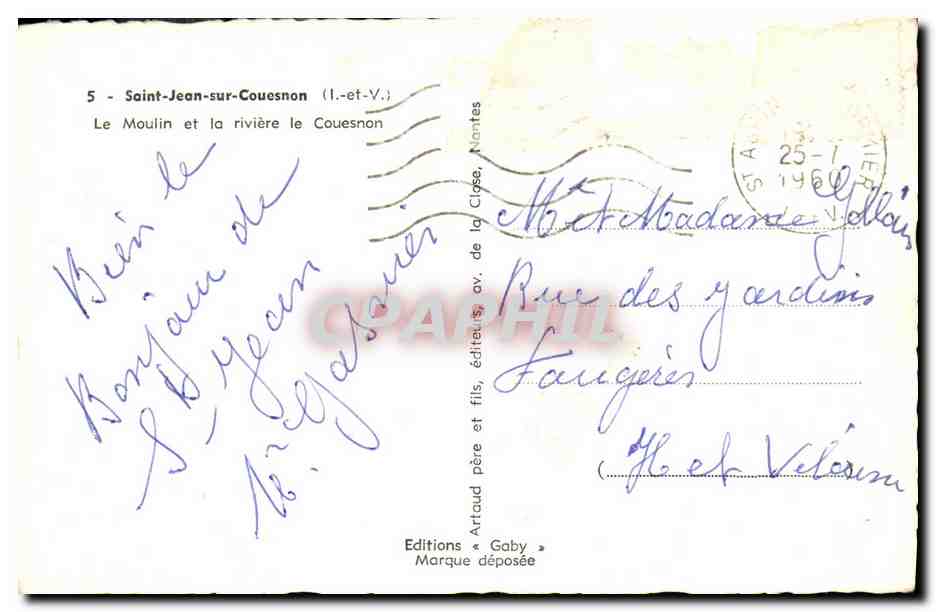 5 - Saint-Jean-sur-Couesnon (I.-et-V.)
Le Moulin et la rivière le Couesnon
Bien le
Bonjour de
St Jean
Artaud père et fils, éditeurs, av. de la Close, Nantes
ST AUBIN
25-7
1960
Mr et Madame
Rue des Jardins
Fougères
Ille et Vilaine
Editions « Gaby »
Marque déposée
CPAPHIL